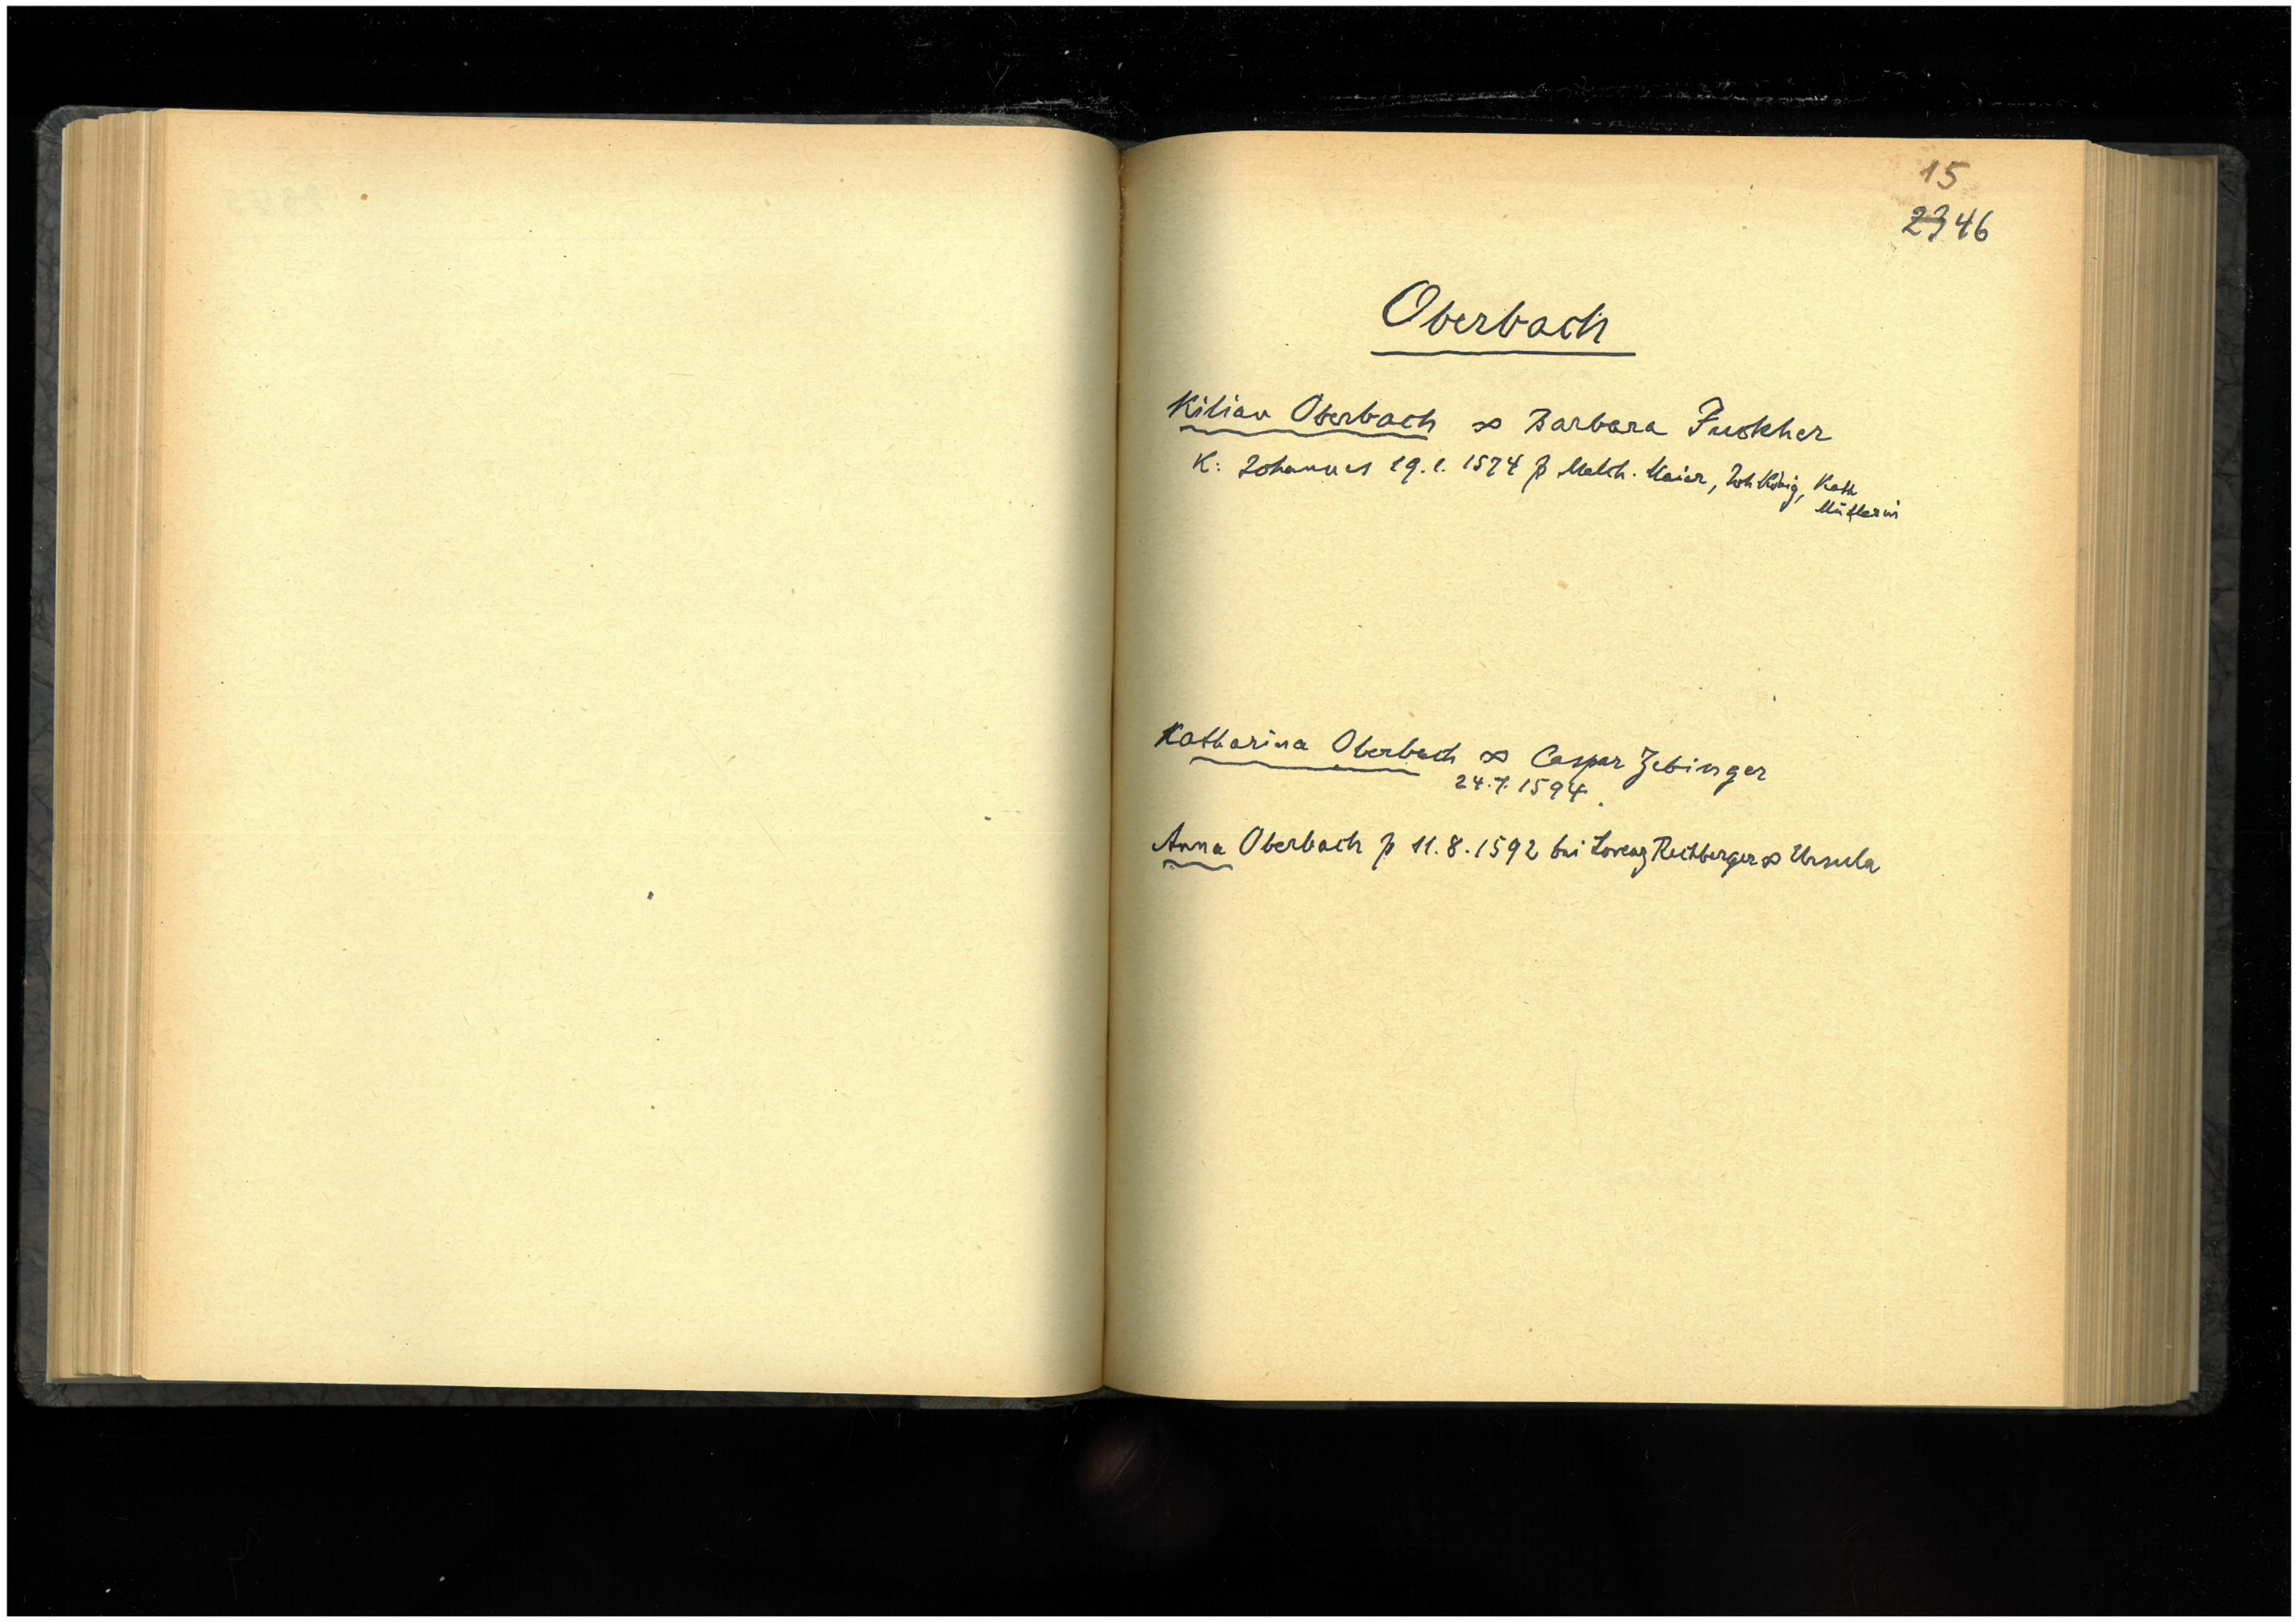 15
2346
Oberbach
Kilian Oberbach ∞ Barbara Fuckher
K: Johannes 29.1.1574 p Melch. Maier, Joh König, Kath
Müllerin
Katharina Oberbach ∞ Caspar Zebinger
24.7.1594.
Anna Oberbach p 11.8.1592 bei Lorenz Rechberger ∞ Ursula